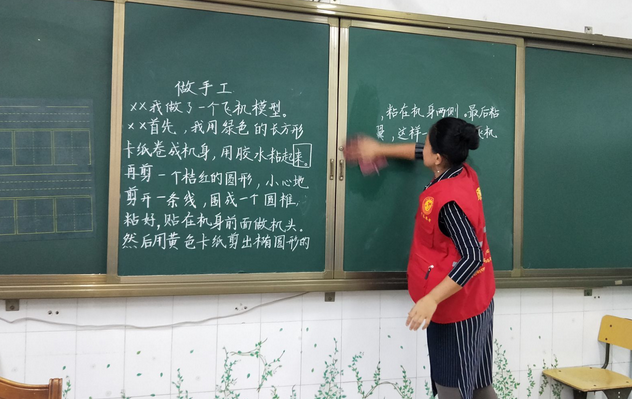 做手工
××我做了一个飞机模型。
××首先,我用绿色的长方形
卡纸卷成机身,用胶水粘起来。
再剪一个桔红的圆形,小心地
剪开一条线,围成一个圆锥,
粘好,贴在机身前面做机头。
然后用黄色卡纸剪出椭圆形的
,粘在机身两侧。最后粘
翼,这样一
机